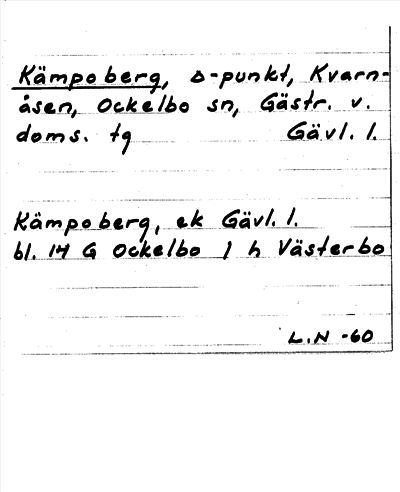 Kämpoberg, Δ-punkt, Kvarn-
åsen, Ockelbo sn, Gästr. v.
doms. tg Gävl. l.
Kämpoberg, ek Gävl. l.
bl. 14 G Ockelbo 1 h Västerbo
L.N -60